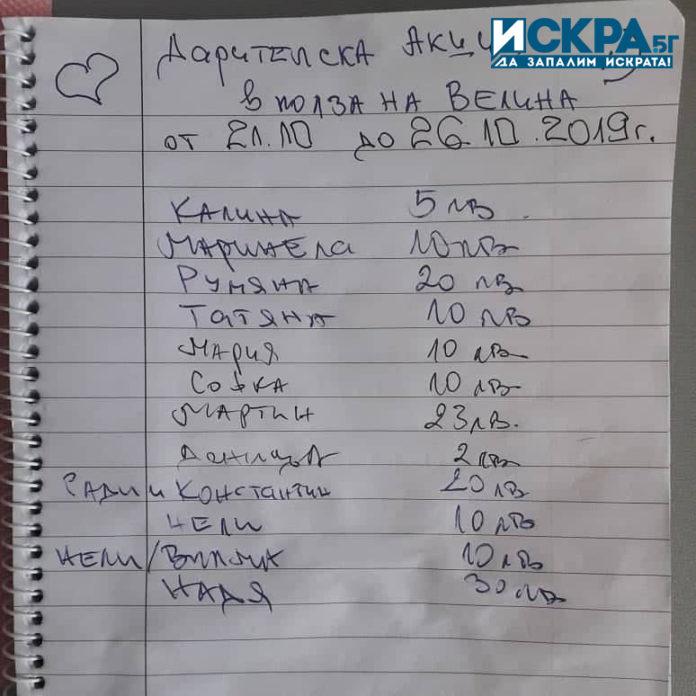 Дарителска Акци
ИСКРА.БГ
ДА ЗАПАЛИМ ИСКРАТА!
в полза на Велина
от 21.10 до 26.10.2019г.
Калина 5 лв.
Маринела 10 лв
Румяна 20 лв
Татяна 10 лв
Мария 10 лв
Софка 10 лв
Мартин 23 лв.
2 лв
Ради и Константин 20 лв
Нели 10 лв
Нели/ 10 лв
Надя 30 лв